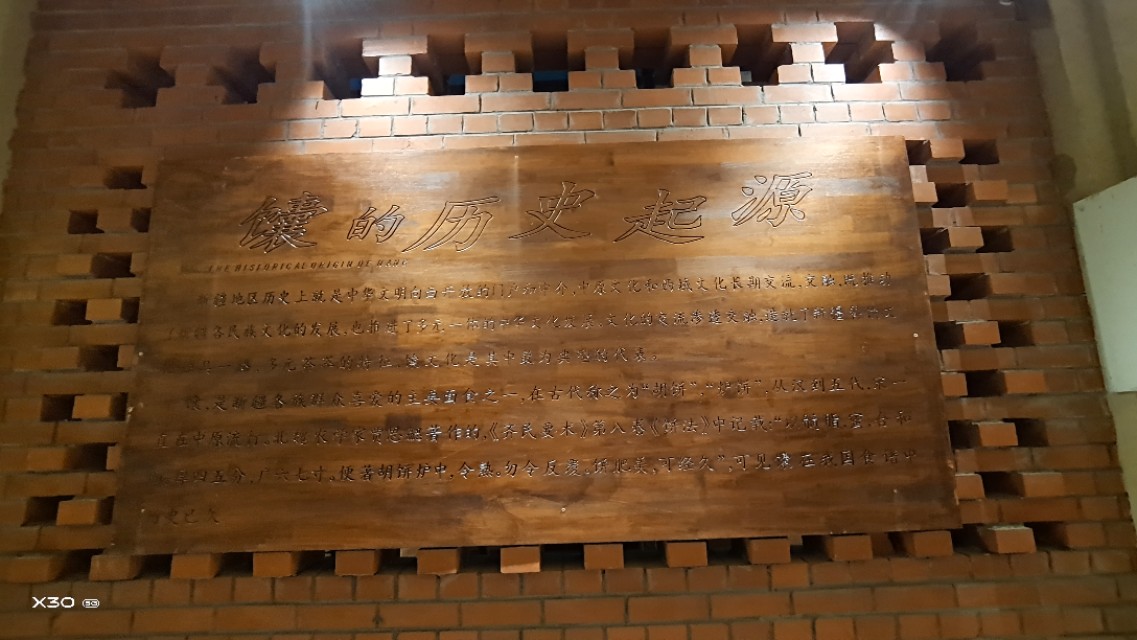 馕的历史起源
THE HISTORICAL ORIGIN OF NANG
新疆地区历史上就是中华文明向西开放的门户和中介,中原文化和西域文化长期交流、交融,既推动
了新疆各民族文化的发展,也推进了多元一体的中华文化发展。文化的交流渗透交融,造就了新疆
一体、多元荟萃的特征,馕文化是其中最为典型的代表。
馕,是新疆各族群众喜爱的主要面食之一,在古代称之为“胡饼”、“炉饼”,从汉到五代,宋一
直在中原流行。北魏农学家贾思勰著作的,《齐民要术》第八卷《饼法》中记载:“以髓脂、蜜、合和
面。厚四五分,广六七寸。便著胡饼炉中,令熟。勿令反覆,饼肥美,可经久”,可见馕在我国食谱中
历史已久
X30 5G